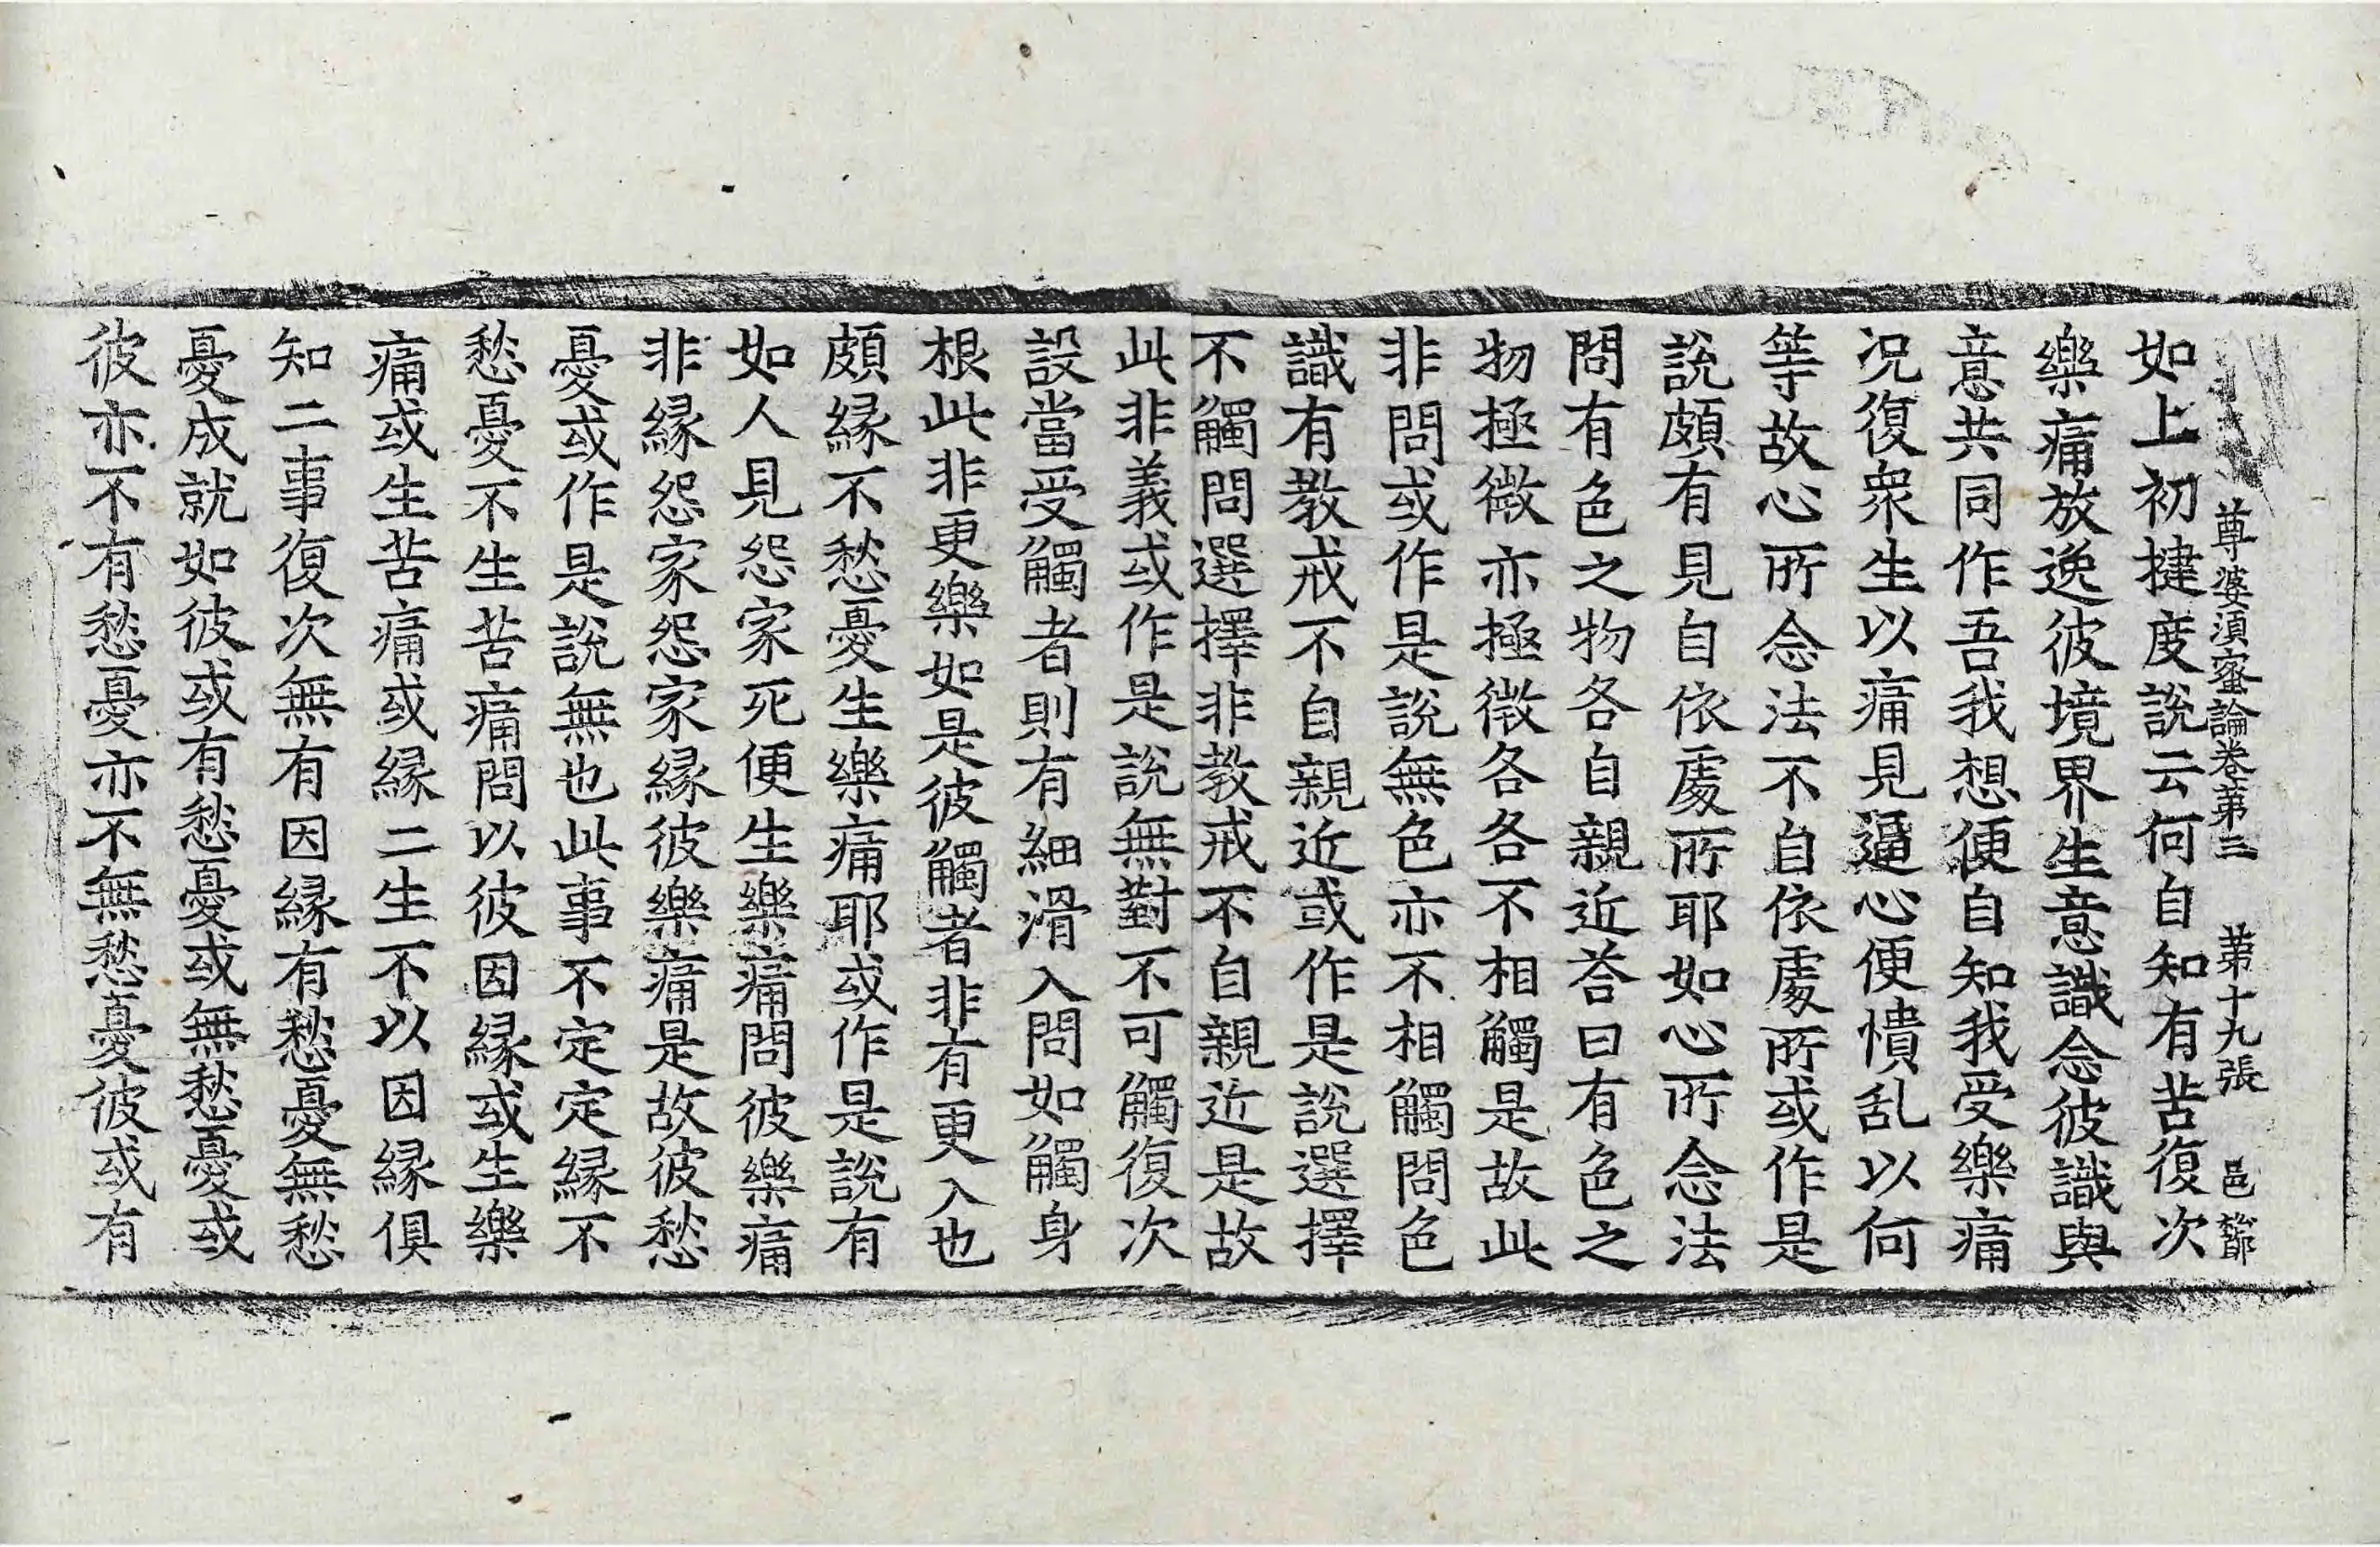 尊婆湏蜜論卷苐三 苐十九張 邑 
如上初揵度說云何自知有苦復次
樂痛放逸彼境界生意識念彼識與
意共同作吾我想便自知我受樂痛
况復衆生以痛見逼心便憒乱以何
等故心所念法不自依處所或作是
說頗有見自依處所耶如心所念法
問有色之物各自親近荅曰有色之
物極微亦極微各各不相觸是故此
非問或作是說無色亦不相觸問色
識有教戒不自親近或作是說選擇
不觸問選擇非教戒不自親近是故
此非義或作是說無對不可觸復次
設當受觸者則有細滑入問如觸身
根此非更樂如是彼觸者非有更入也
頗緣不愁憂生樂痛耶或作是說有
如人見怨家死便生樂痛問彼樂痛
非緣怨家怨家緣彼樂痛是故彼愁
憂或作是說無也此事不定定緣不
愁憂不生苦痛問以彼因緣或生樂
痛或生苦痛或緣二生不以因緣俱
知二事復次無有因緣有愁憂無愁
憂成就如彼或有愁憂或無愁憂或
彼亦不有愁憂亦不無愁憂彼或有